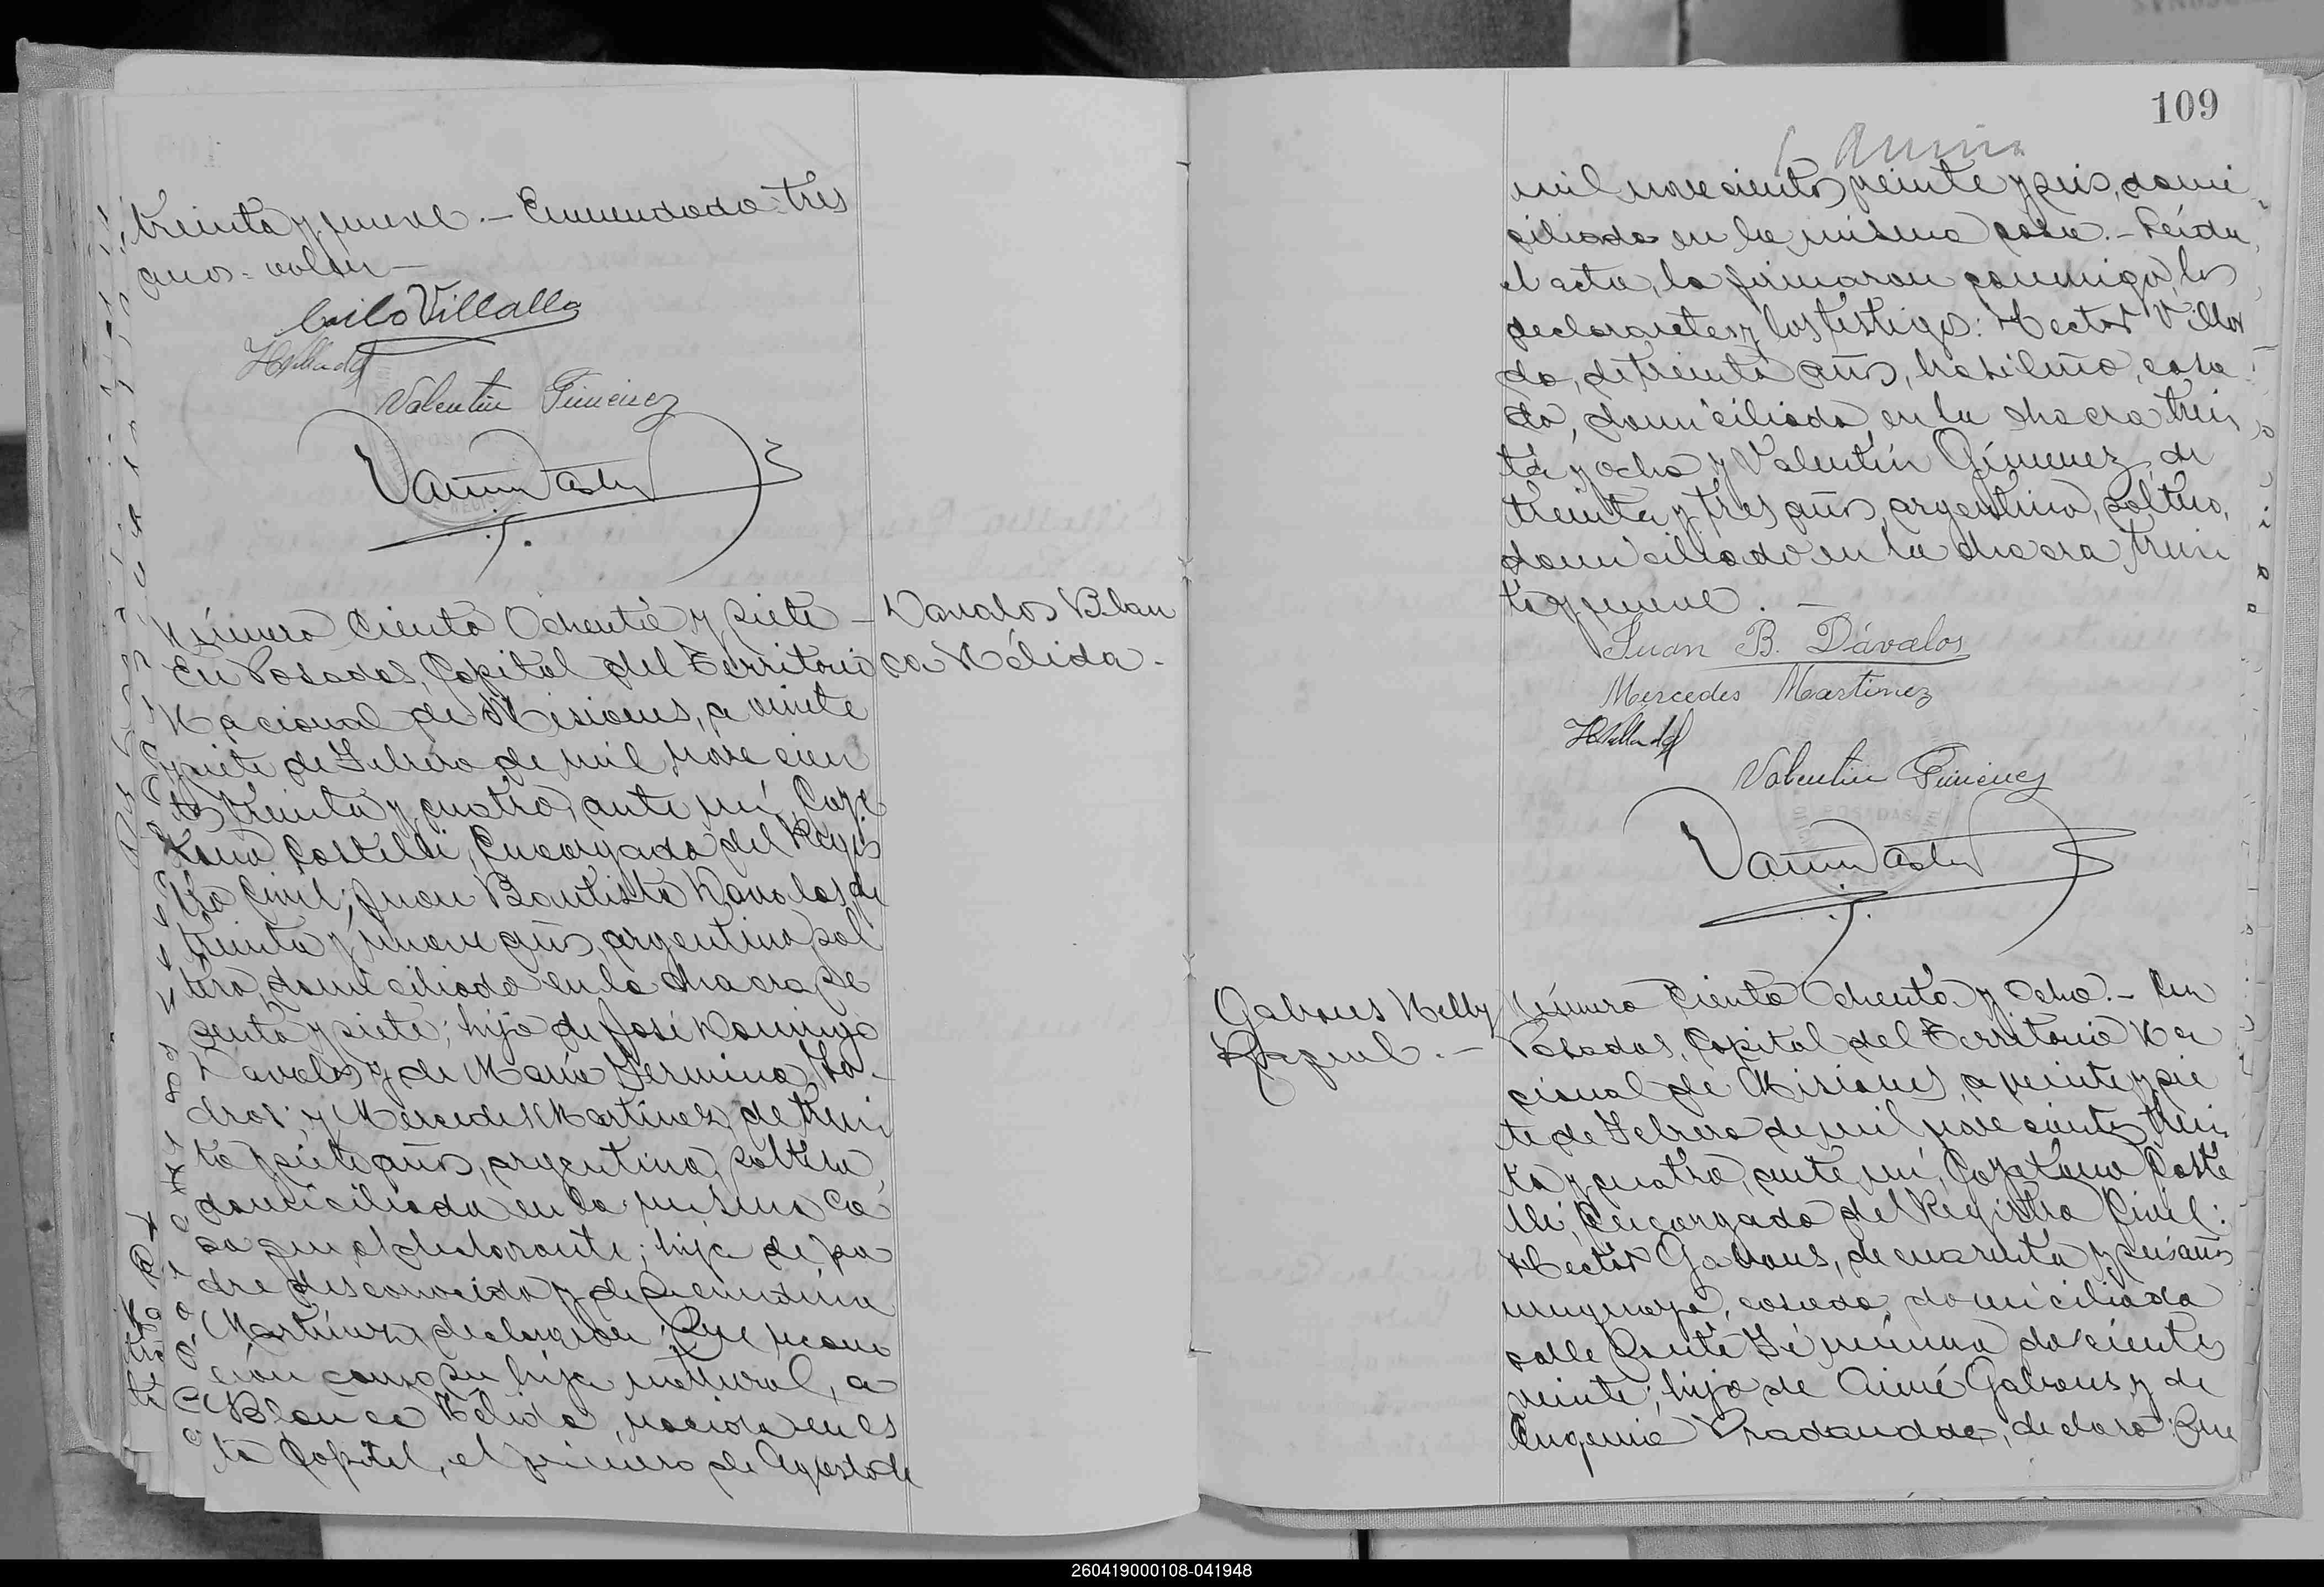 treinta y nueve.- Enmendado: tres
años - valen -
Cirilo Villalba
HVillordo
Valentin Gimenez
POSADAS
Número Ciento Ochenta y siete -
En Posadas, Capital del Territorio
Nacional de Misiones, a veinte
y siete de Febrero de mil nove cien
tos treinta y cuatro, ante mí, Caye
tano Castelli, Encargado del Regis
tro Civil; Juan Bautista Davalos, de
treinta y nueve años, argentino, sol
tero, domiciliado en la chacra se
senta y siete; hijo de José Domingo
Davalos y de María Fermina
; y Mercedes Martínez, de trein
ta y siete años, argentina, soltera,
domiciliada en la misma ca
sa que el declarante; hija de pa
dre desconocido y de
Martínez, declararon: Que recono
cían como su hija natural, a
Blanca Nélida, nacida en es
ta Capital, el primero de Agosto de
Davalos Blan
ca Nélida.-
109
mil novecientos veinte y seis, domi
ciliada en la misma casa.- Leída
el acta, la firmaron conmigo, los
declarantes y los testigos: Hector Villor
do, de treinta años, brasileño, casa
do, domiciliado en la chacra trein
ta y ocho y Valentín Gimenez, de
treinta y tres años, argentino, soltero,
domiciliado en la chacra trein
ta y nueve.-
Juan B. Dávalos
Mercedes Martinez
HVillordo
Valentin Gimenez
POSADAS
Gabous Nelly
Raquel.-
Número Ciento Ochenta y Ocho.- En
Posadas, Capital del Territorio Na
cional de Misiones, a veinte y sie
te de Febrero de mil novecientos trein
ta y cuatro, ante mí, Cayetano Caste
lli, Encargado del Registro Civil:
Hector Gabous, de cuarenta y seis años,
uruguayo, casado, domiciliado
calle Santa Fé número doscientos
veinte; hijo de Aimé Gabous y de
Eugenia, declaró: Que
260419000108-041948